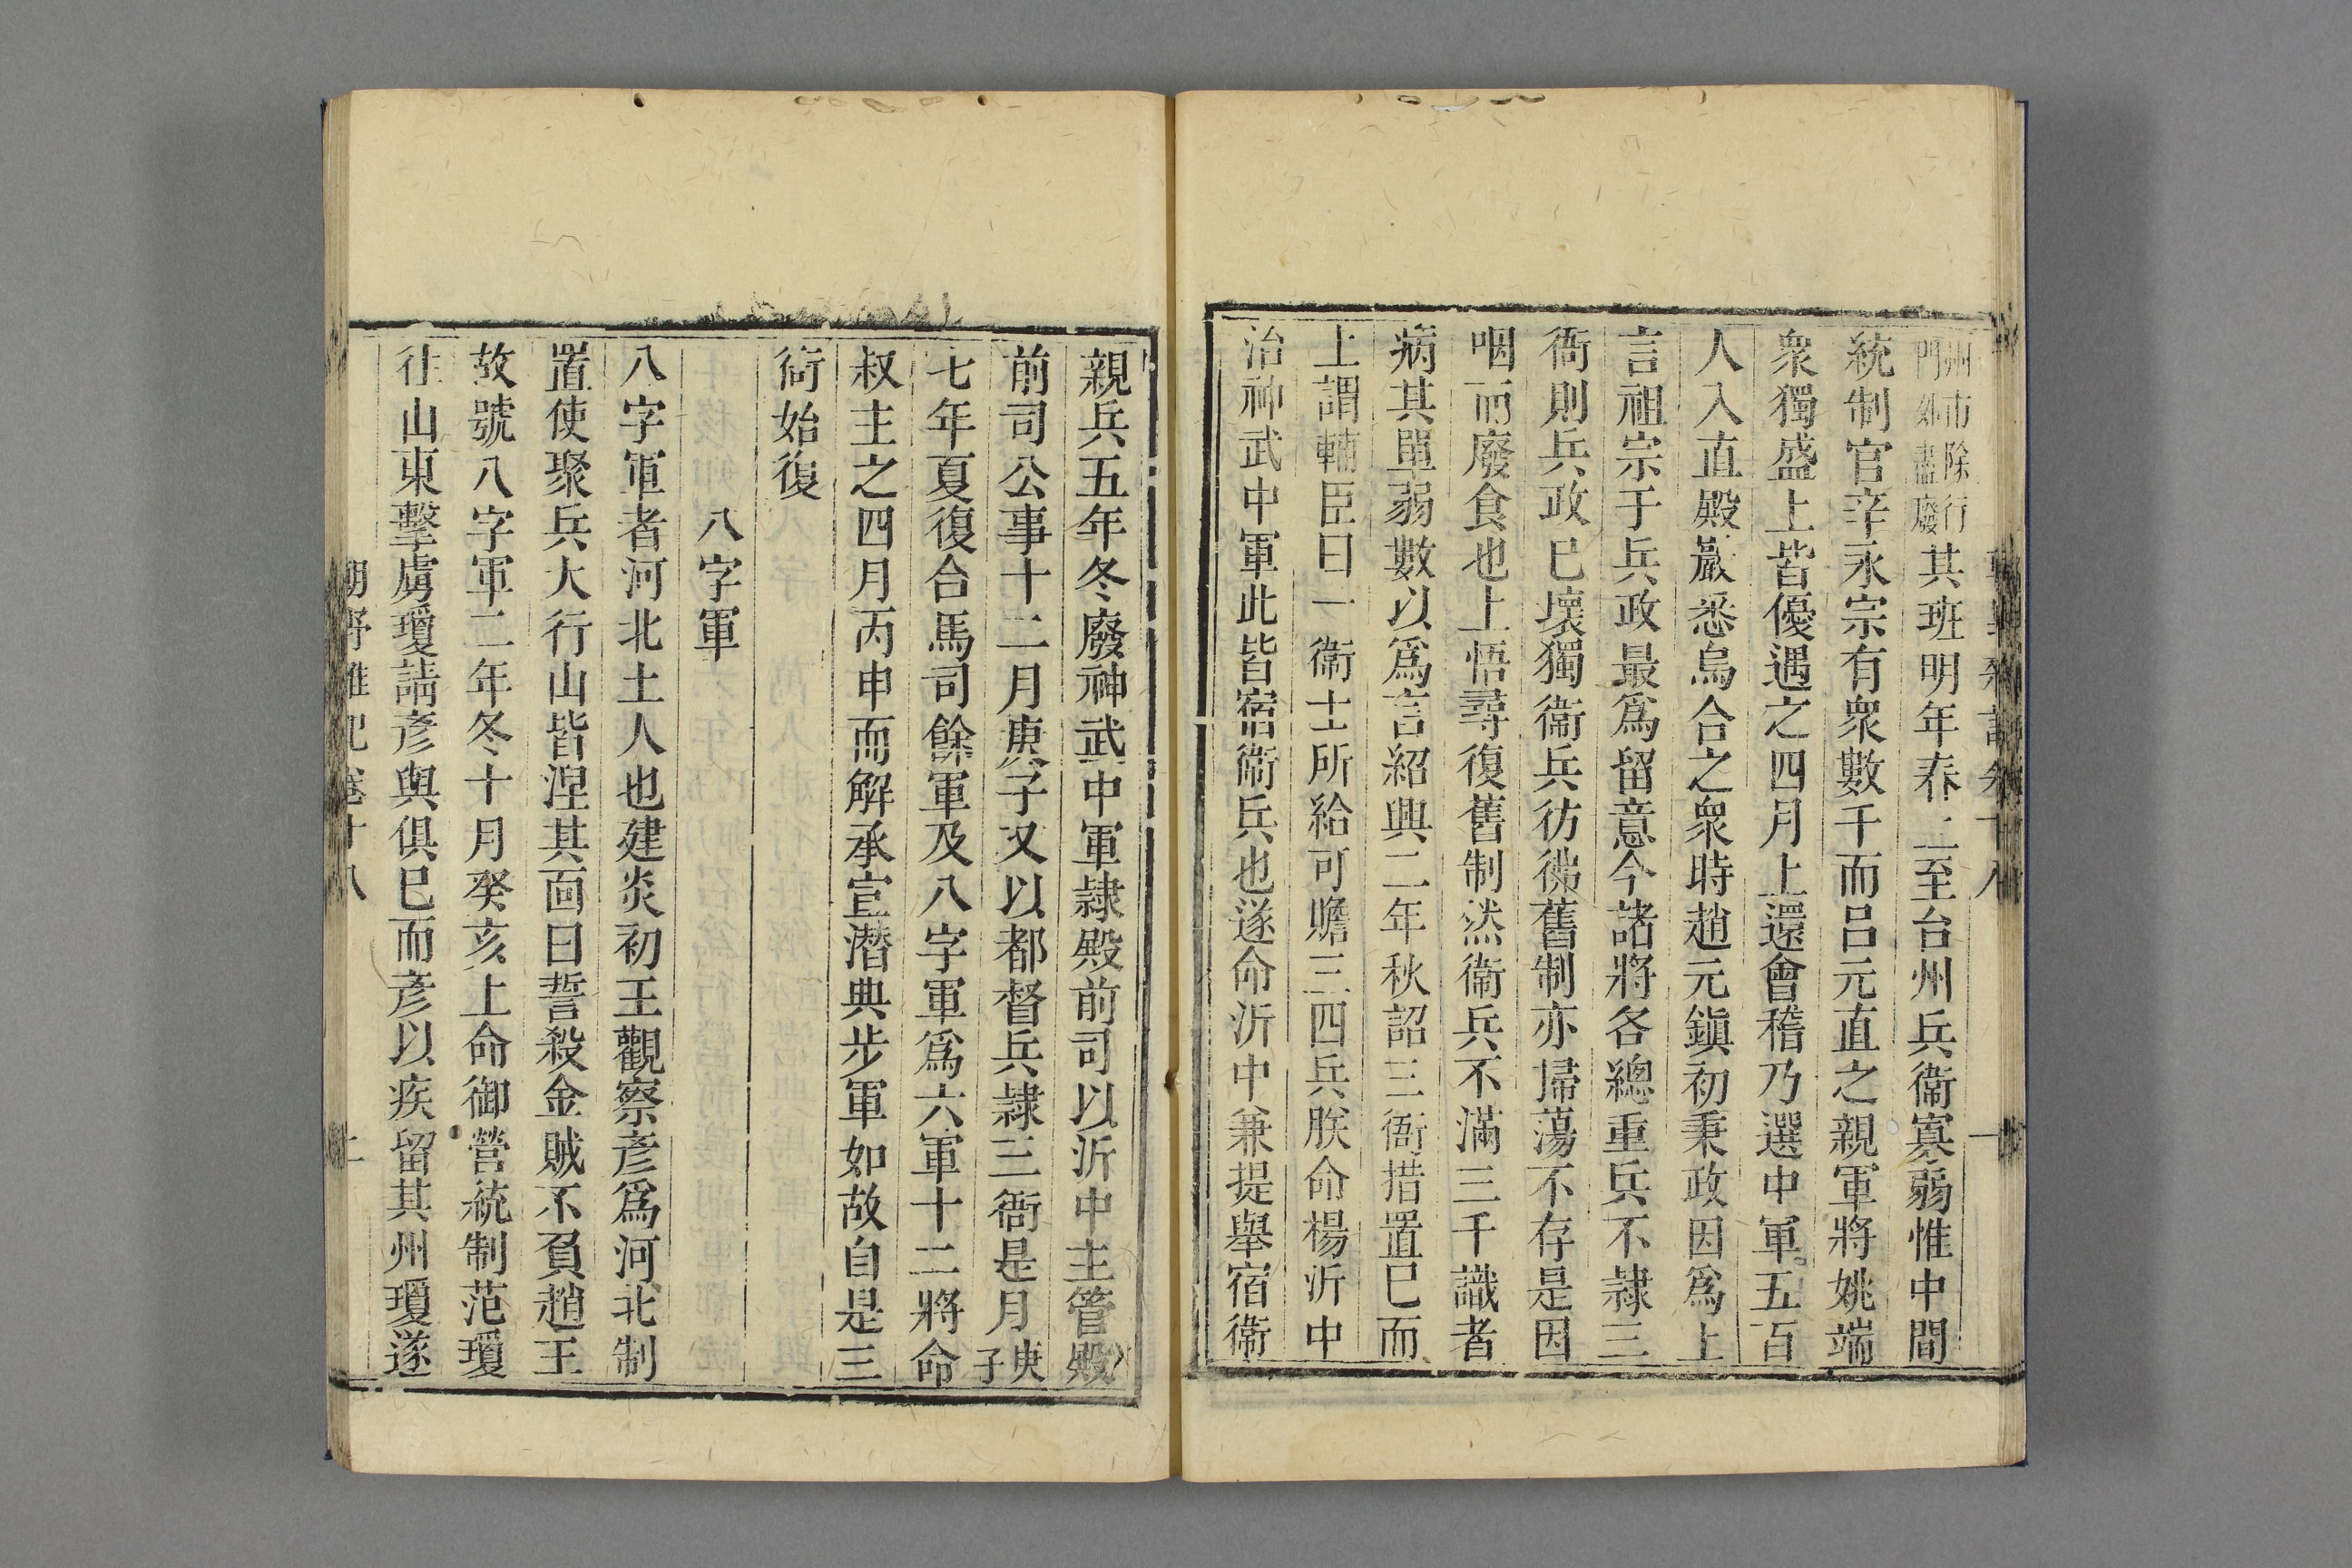 州市除行
門外盡廢
其班明年春上至台州兵衞寡弱惟中間
統制官辛永宗有衆數千而呂元直之親軍將姚端
衆獨盛上皆優遇之四月上還會稽乃選中軍五百
人入直殿巖悉烏合之衆時趙元鎭初秉政因爲上
言祖宗于兵政最爲留意今諸將各總重兵不隷三
衙則兵政已壞獨衞兵彷彿舊制亦掃蕩不存是因
咽而廢食也上悟尋復舊制然衞兵不滿三千識者
病其單弱數以爲言紹興二年秋詔三衙措置巳而
上謂輔臣曰一衞士所給可贍三四兵朕命楊沂中
治神武中軍此皆宿衞兵也遂命沂中兼提舉宿衞
親兵五年冬廢神武中軍隷殿前司以沂中主管殿
前司公事十二月庚子又以都督兵隷三衙是月庚子
七年夏復合馬司餘軍及八字軍爲六軍十二將命
叔主之四月丙申而解承宣潛典步軍如故自是三
衙始復
八字軍
八字軍者河北土人也建炎初王觀察彦爲河北制
置使聚兵大行山皆涅其面曰誓殺金賊不負趙王
故號八字軍二年冬十月癸亥上命御營統制范瓊
往山東擊虜瓊請彦與俱巳而彦以疾留其州瓊遂
朝野雜記卷十八